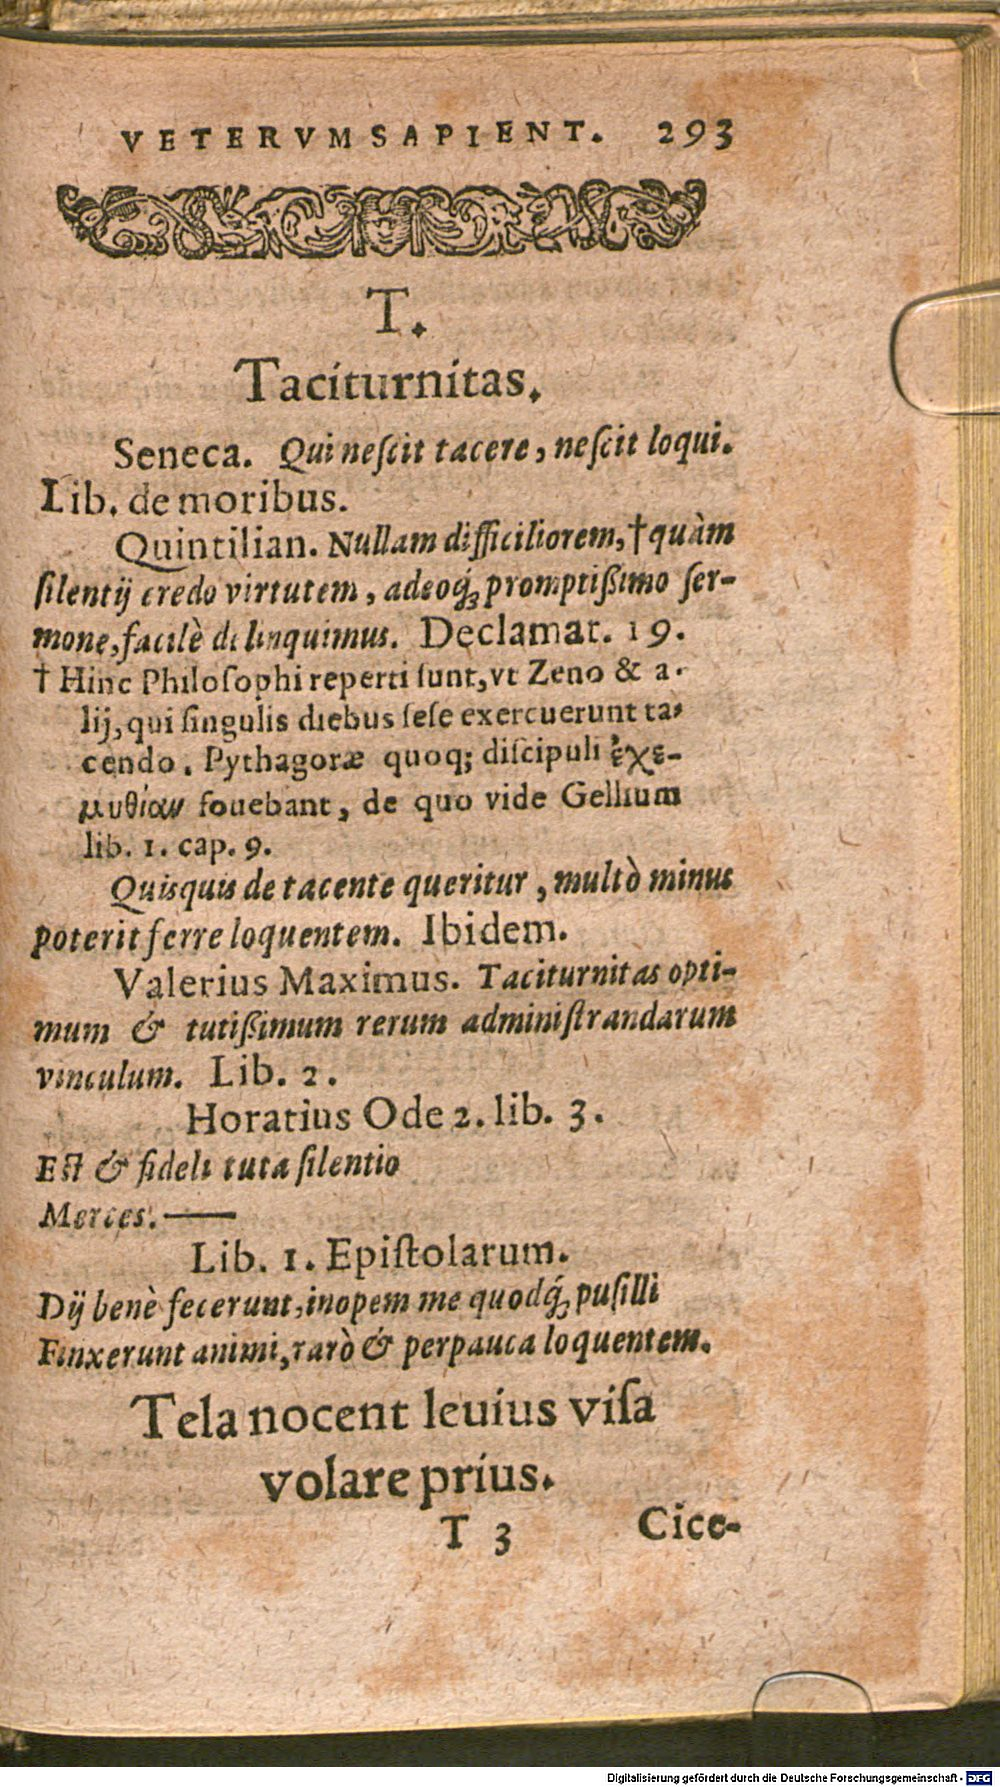 VETERVM SAPIENT. 293
T.
Taciturnitas.
Seneca. Qui neſcit tacere, neſcit loqui.
Lib. de moribus.
Quintilian. Nullam difficiliorem, † quàm
ſilentij credo virtutem, adeoq́; promptißimo ſer-
mone, facilè delinquimus. Declamat. 19.
† Hinc Philoſophi reperti ſunt, vt Zeno & a-
lij, qui ſingulis diebus ſeſe exercuerunt ta-
cendo. Pythagoræ quoq; diſcipuli ἐχε-
μυθίαν fouebant, de quo vide Gellium
lib. 1. cap. 9.
Quisquis de tacente queritur, multò minus
poterit ferre loquentem. Ibidem.
Valerius Maximus. Taciturnitas opti-
mum & tutißimum rerum adminiſtrandarum
vinculum. Lib. 2.
Horatius Ode 2. lib. 3.
Eſt & fideli tuta ſilentio
Merces. —
Lib. 1. Epiſtolarum.
Dij benè fecerunt, inopem me quodq́; puſilli
Finxerunt animi, rarò & perpauca loquentem.
Tela nocent leuius viſa
volare prius.
T 3 Cice-
Digitalisierung gefördert durch die Deutsche Forschungsgemeinschaft - DFG